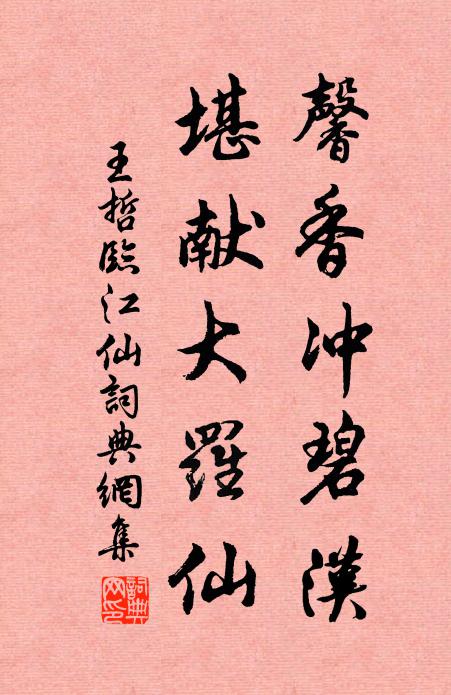 馨香冲碧漢
堪献大羅仙
王哲臨江仙詞典網集
詞典網印